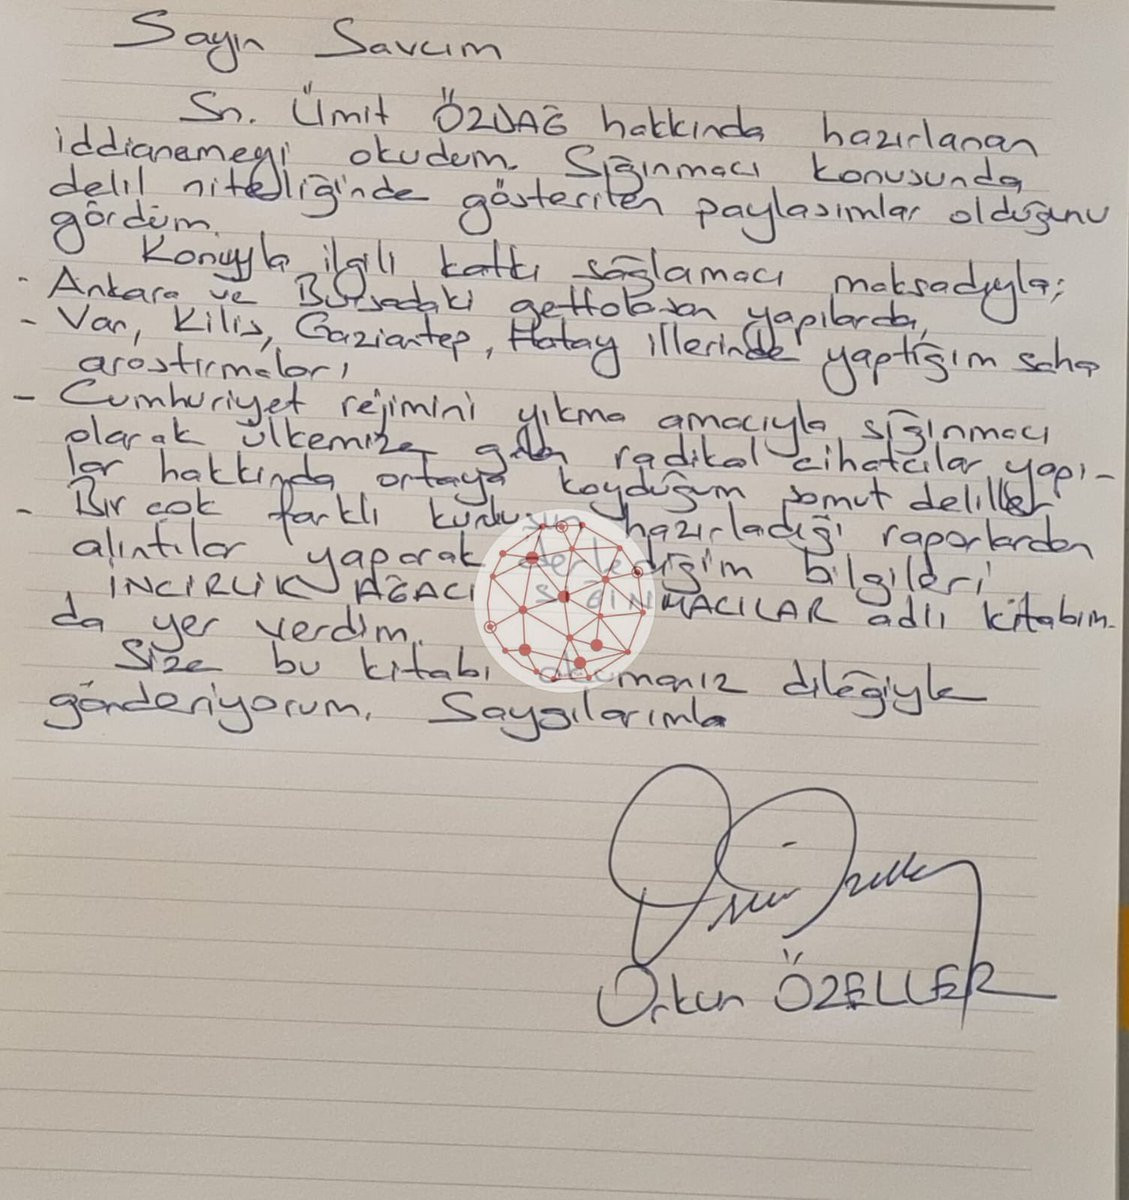 Sayın Savcım
Sn. Ümit ÖZDAĞ hakkında hazırlanan
iddianameyi okudum. Sığınmacı konusunda
delil niteliğinde gösterilen paylaşımlar olduğunu
gördüm.
Konuyla ilgili katkı sağlamacı maksadıyla;
- Ankara ve Bursadaki gettolaşan yapılarda,
- Van, Kilis, Gaziantep, Hatay illerinde yaptığım saha
araştırmaları
- Cumhuriyet rejimini yıkma amacıyla sığınmacı
olarak ülkemize gelen radikal cihatcılar yapı-
lar hakkında ortaya koyduğum somut deliller
- Bir çok farklı hazırladığı raporlardan
alıntılar yaparak derlediğim bilgileri
İNCİRLİK AĞACI SIĞINMACILAR adlı kitabım.
da yer verdim.
Size bu kitabı okumanız dileğiyle
gönderiyorum. Saygılarımla
Orkun ÖZELLER